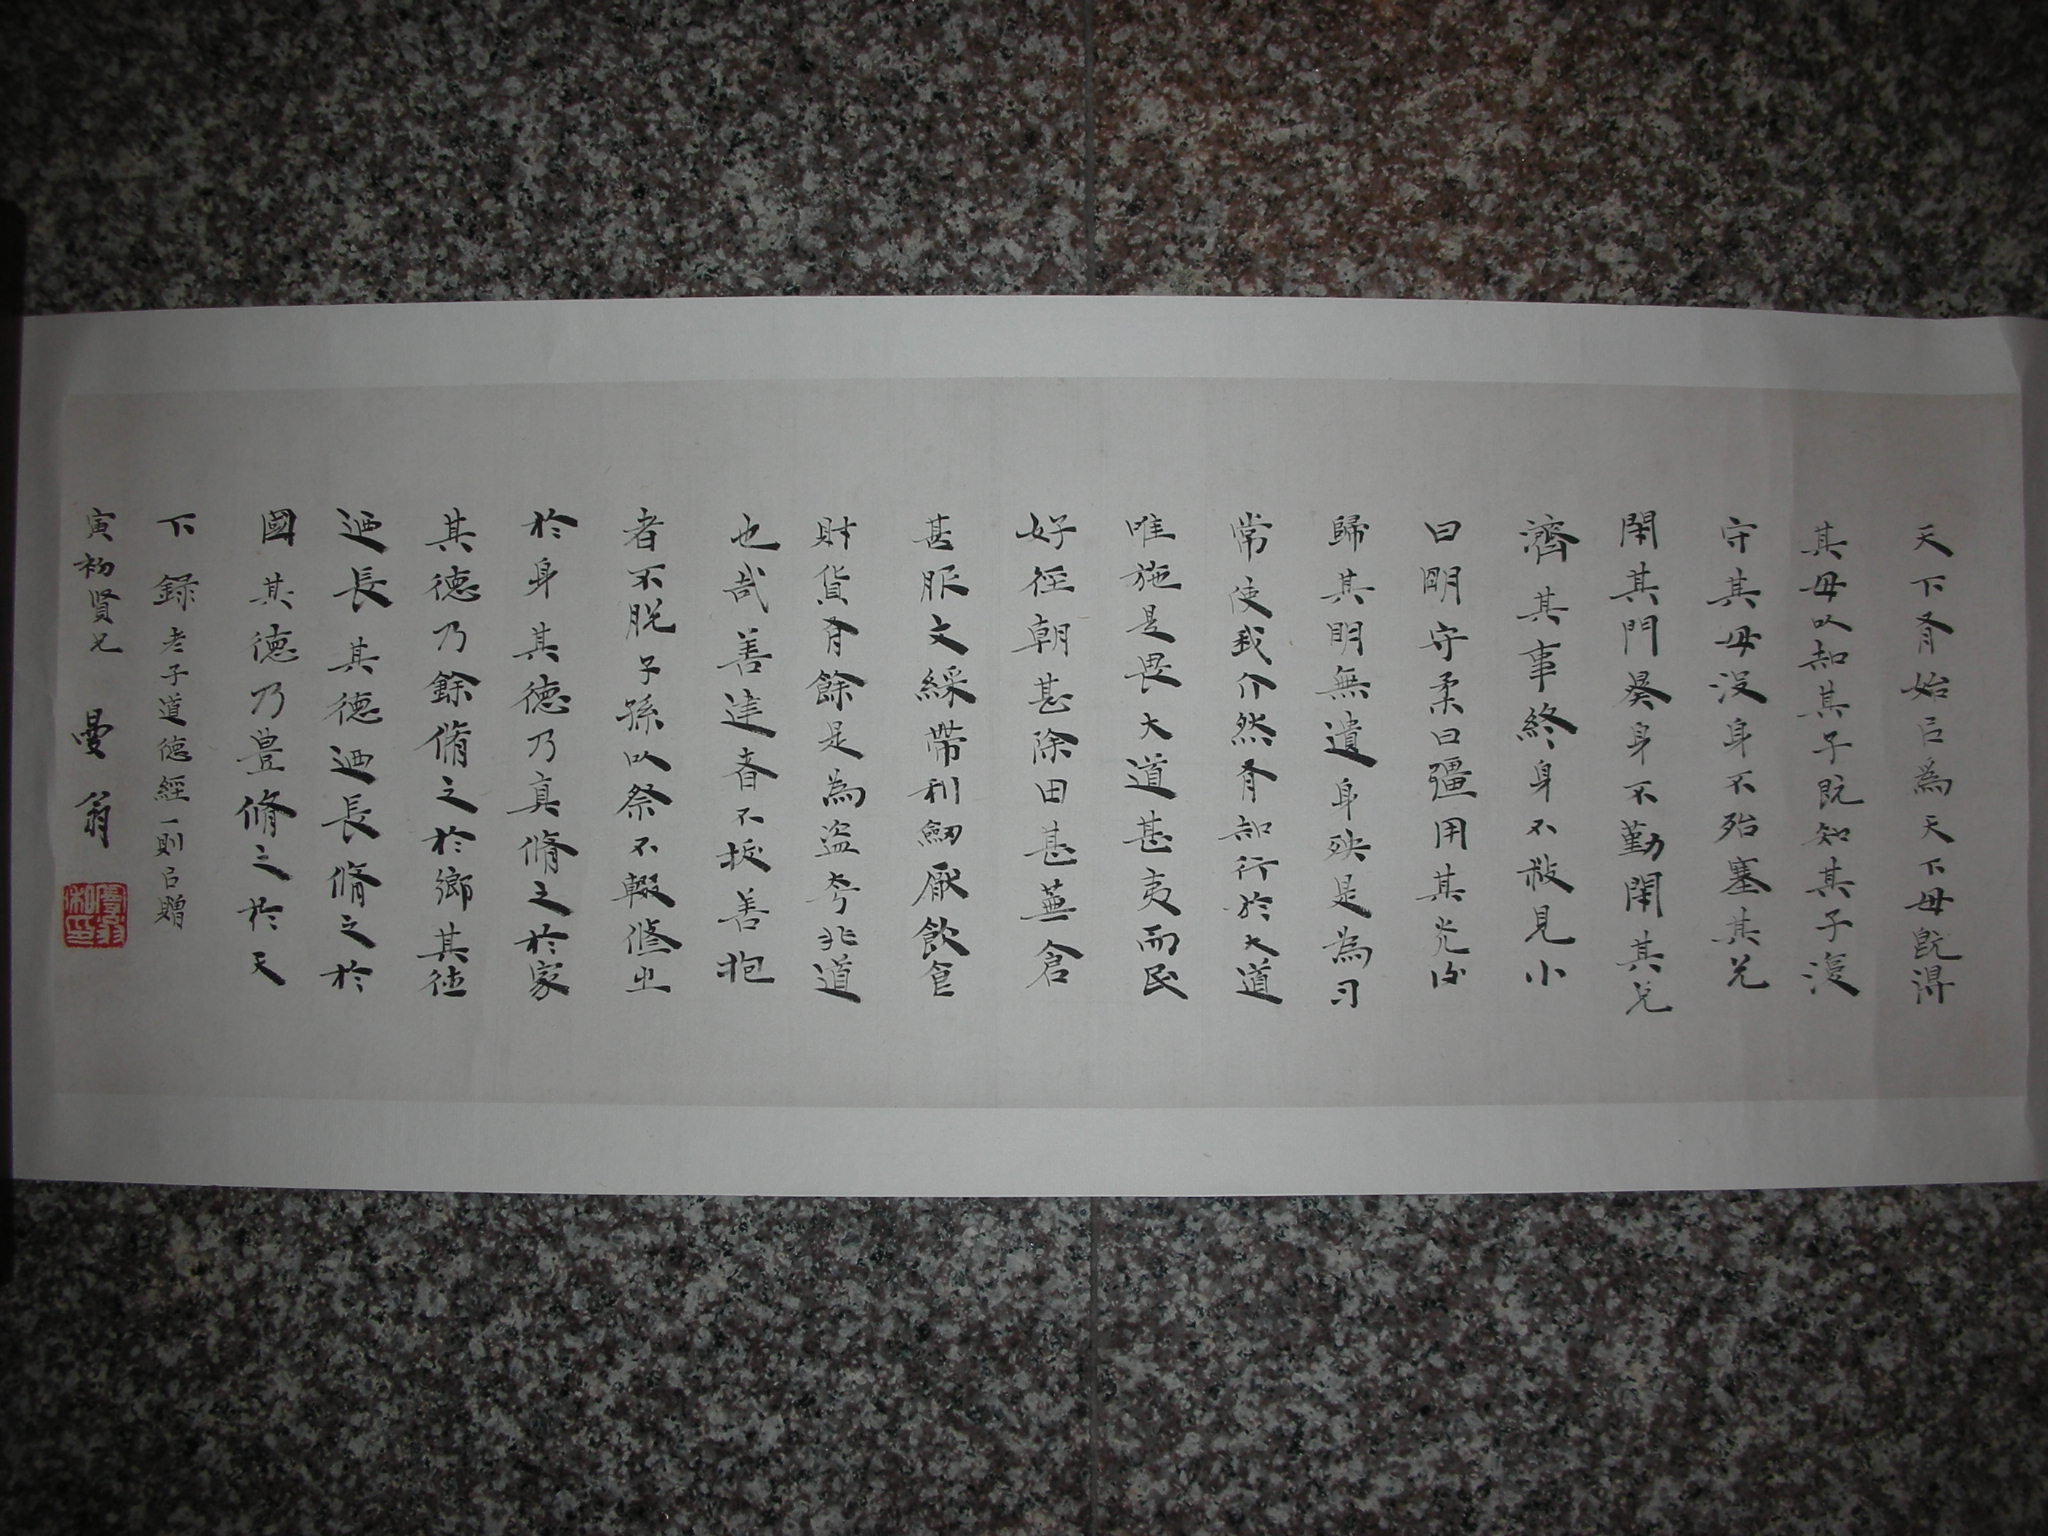 天下有始㠯為天下母旣得
其母以知其子既知其子復
守其母没身不殆塞其兑
閉其門𣅳身不勤開其兑
濟其事終身不救見小
曰明守柔曰彊用其光復
歸其明無遺身殃是為習
常使我介然有知行於大道
唯施是畏大道甚夷而民
好徑朝甚除田甚蕪倉
甚服文綵帶利劒厭飲食
財貨有餘是為盜夸非道
也哉善建者不拔善抱
者不脫子孫以祭不輟脩之
於身其德乃真脩之於家
其德乃餘脩之於鄉其德
迺長其德迺長脩之於
國其德乃豊脩之於天
下錄老子道德經一則㠯贈
寅初賢兄 曼翁